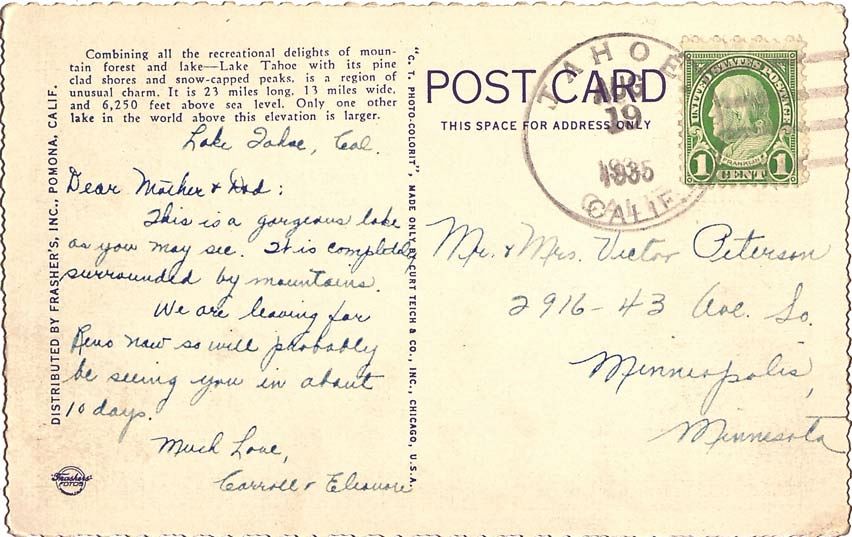 Combining all the recreational delights of moun-
tain forest and lake—Lake Tahoe with its pine
clad shores and snow-capped peaks, is a region of
unusual charm. It is 23 miles long, 13 miles wide,
and 6,250 feet above sea level. Only one other
lake in the world above this elevation is larger.
Lake Tahoe, Cal.
Dear Mother & Dad:
This is a gorgeous lake
as you may see. It is completely
surrounded by mountains.
We are leaving for
Reno now so will probably
be seeing you in about
10 days.
Much Love,
Carroll & Eleanore
DISTRIBUTED BY FRASHER'S, INC., POMONA, CALIF.
Frashers'
FOTOS
"C. T. PHOTO-COLORIT" MADE ONLY BY CURT TEICH & CO., INC., CHICAGO, U.S.A.
POST CARD
THIS SPACE FOR ADDRESS ONLY
TAHOE
AUG
19
1935
CALIF.
UNITED STATES POSTAGE
FRANKLIN
1 CENT 1
Mr. & Mrs. Victor Peterson
2916-43 Ave. So.
Minneapolis,
Minnesota